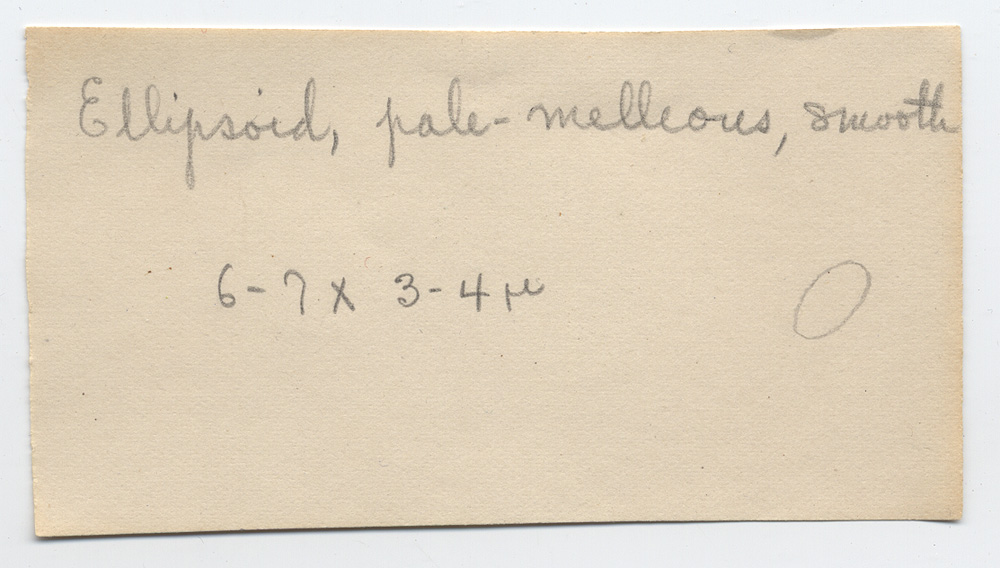 Ellipsoid, pale-melleous, smooth
6-7 x 3-4 µ